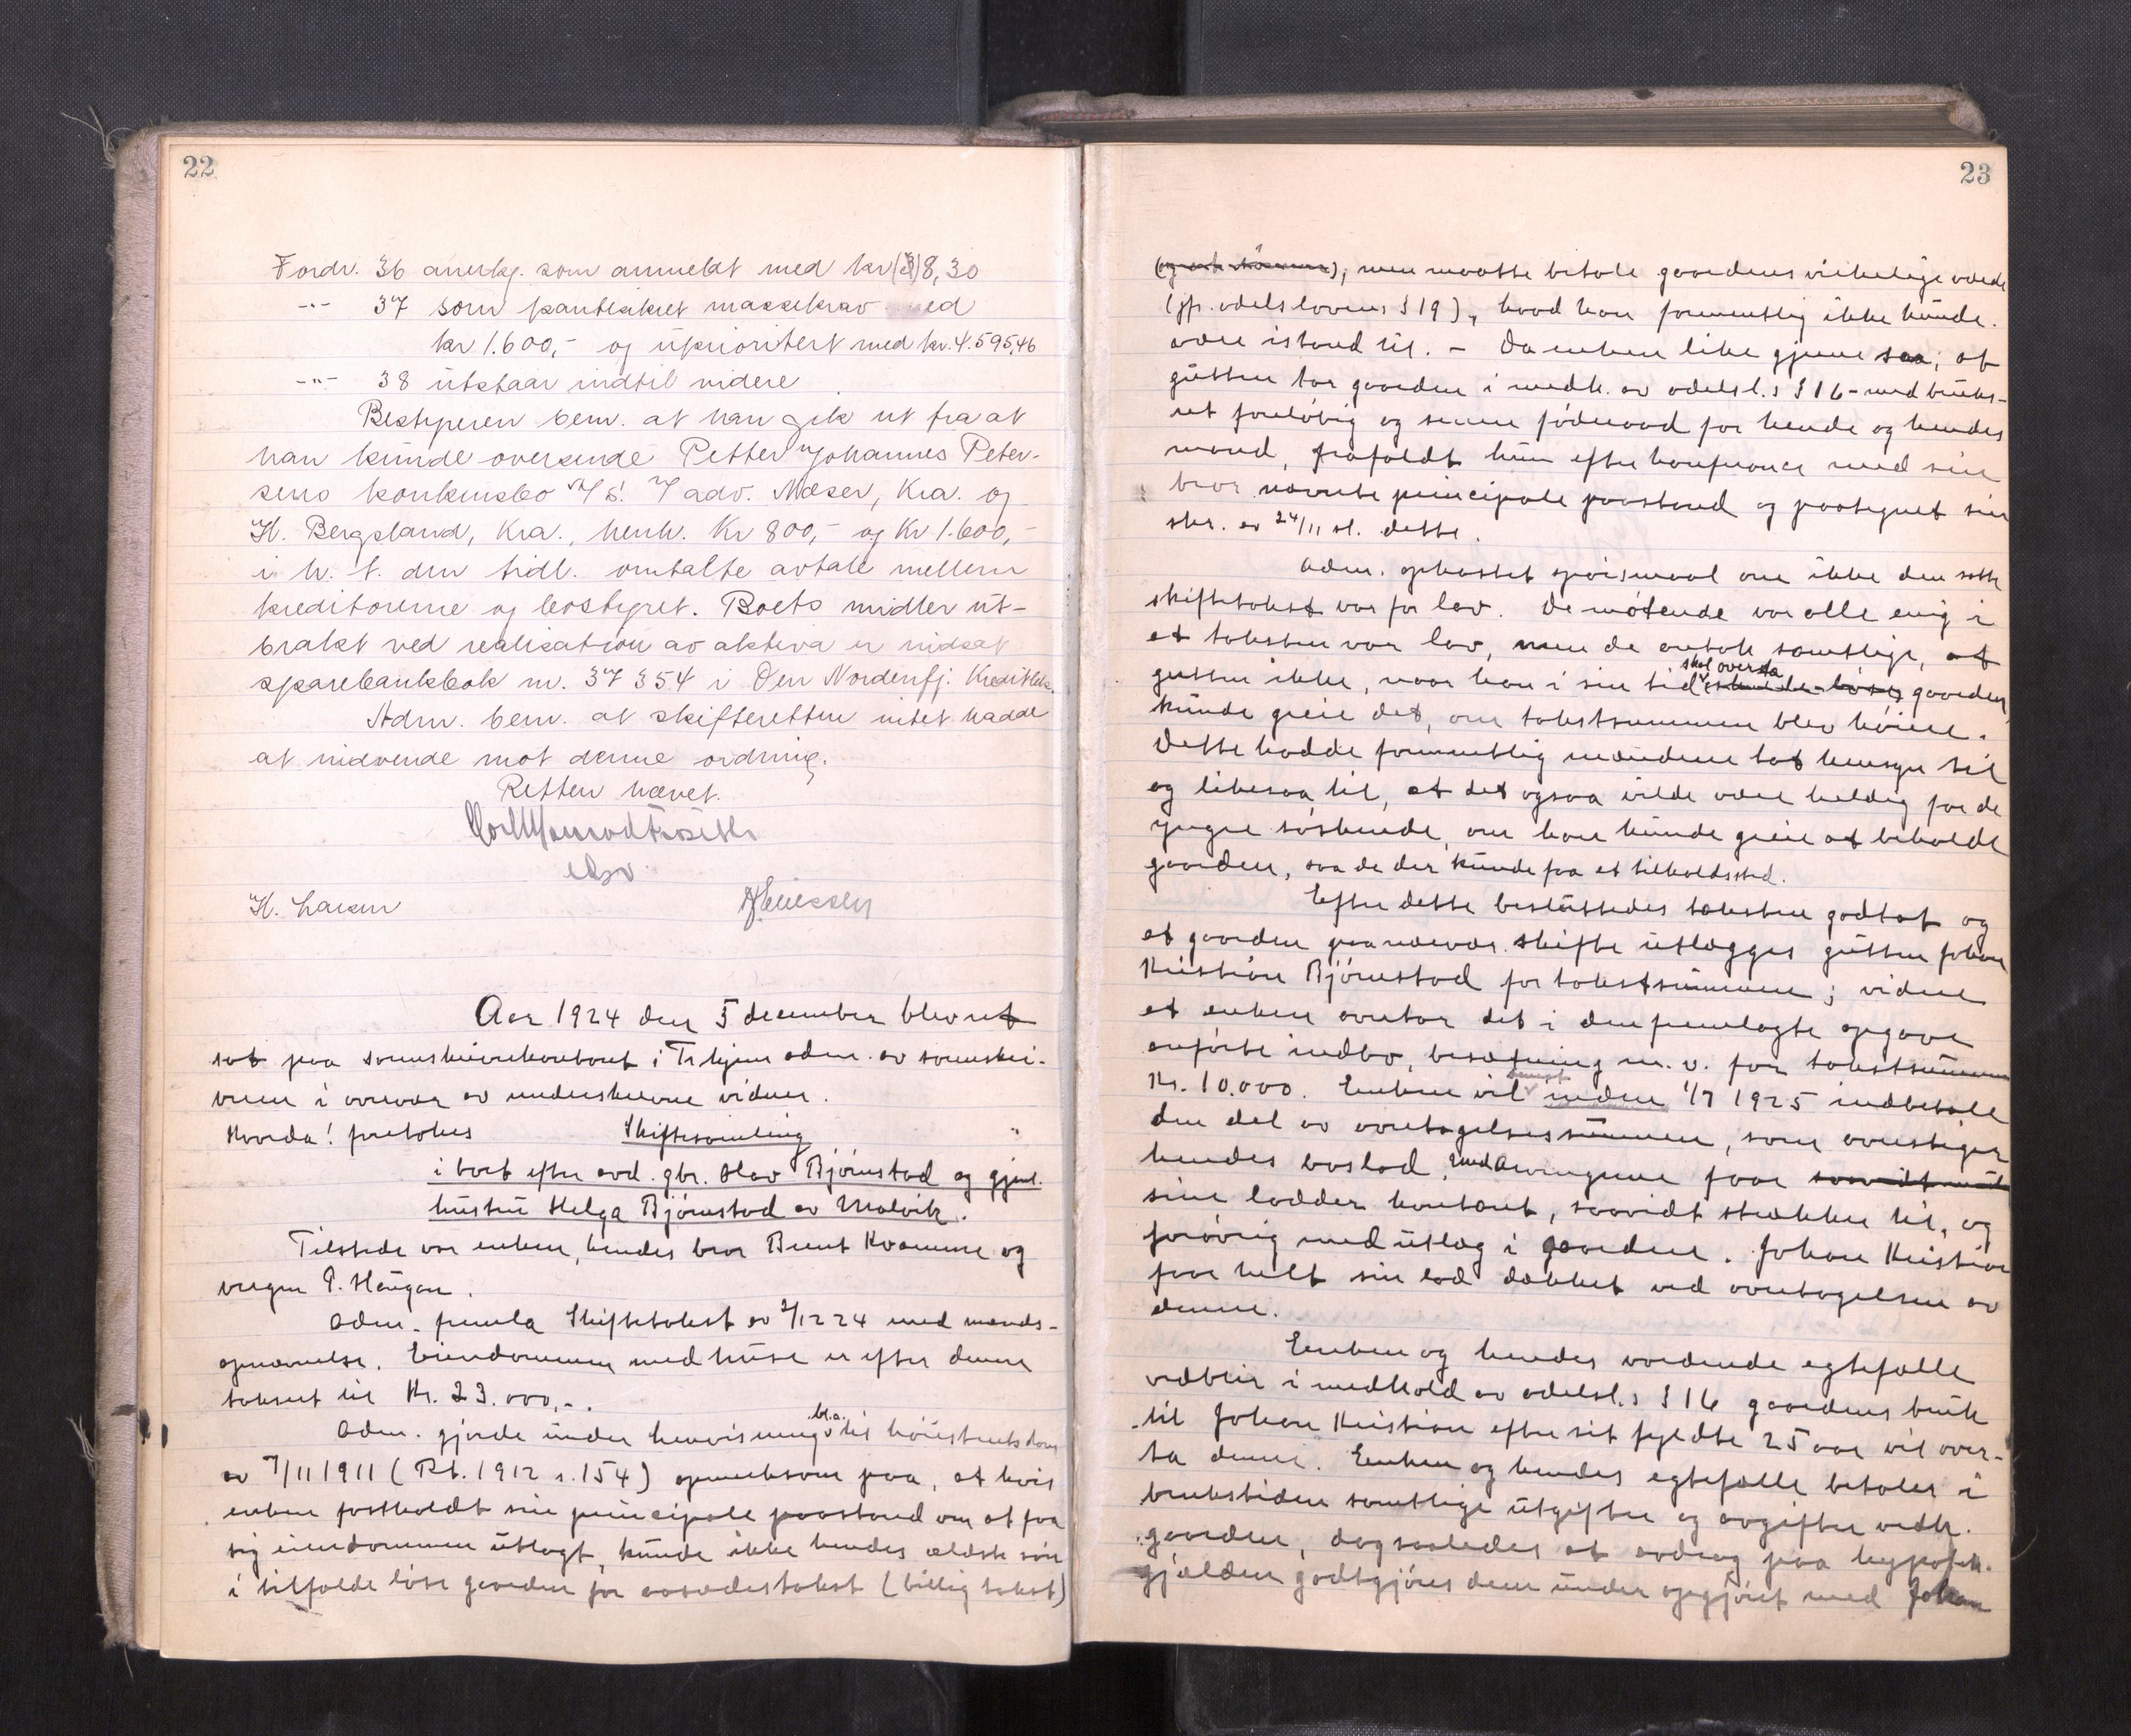 22
Fordr. 36 anerkj. som anmeldt med kr (3)8,30
-"- 37 som pantsikret massekrav med
kr 1.600,- og uprioritert med kr. 4.595,46
-"- 38 utstaar indtil videre
Bestyreren bem. at han gik ut fra at
han kunde oversende Petter Johannes Peter-
sens konkursbo v/ adv. Næser, Kra. og
H. Bergsland, Kra., henh. Kr 800,- og Kr 1.600,-
i h. t. den tidl. omtalte avtale mellem
kreditorerne og bostyret. Boets midler ut-
brakt ved realisation av aktiva er indsat
sparebankbok nr. 37354 i Den Nordenfj. Kreditbk.
Adm. bem. at skifteretten intet hadde
at indvende mot denne ordning.
Retten hævet.
H. Larsen
Aar 1924 den 5 december blev ret
sat paa sorenskriverkontoret i Tr.hjem adm. av sorenskri-
veren i overvær av underskrevne vidner.
Hvorda! foretokes Skiftesamling
i boet efter avd. gbr. Olav Björnstad og gjenl.
hustru Helga Björnstad av Malvik.
Tilstede var enken, hendes bror Bernt Kvamme og
vergen P. Haugan.
Adm. freml. Skiftetakst av 2/12 24 med mands-
opnævnelse. Eiendommen med huse er efter denne
taksert til Kr. 23.000,-.
Adm. gjorde under henvisning bl.a. til höiesteretsdom
av 7/11 1911 (Rt. 1912 s. 154) opmerksom paa, at hvis
enken fastholdt sin principale paastand om at faa
sig eiendommen utlagt, kunde ikke hendes ældste sön
i tilfælde löse gaarden for aasædestakst (billig takst)
23
men maatte betale gaardens virkelige værdi
(jfr. odelslovens § 19), hvad han formentlig ikke kunde
være istand til. - Da enken like gjerne saa, at
gutten tar gaarden i medh. av odelsl.s § 16 - med bruks-
ret foreløbig og senere föderaad for hende og hendes
mand, frafaldt hun efter konferance med sin
bror nævnte principale paastand og paategnet sin
skr. av 24/11 sl. dette.
Adm. opkastet spörsmaal om ikke den satte
skiftetakst var for lav. De mötende var alle enig i
at taksten var lav, men de antok samtlige, at
gutten ikke, naar han i sin tid skal overta gaarden,
kunde greie det, om takstsummen blev höiere.
Dette hadde formentlig mændene tat hensyn til
og likesaa til, at det ogsaa vilde være heldig for de
yngre söskende, om han kunde greie at beholde
gaarden, saa de der kunde faa et tilholdssted.
Efter dette besluttedes taksten godtat og
at gaarden paa nærvær. skifte utlægges gutten Johan
Kristian Björnstad for takstsummen; videre
at enken overtar det i den fremlagte opgave
anförte indbo, besætning m. v. for takstsummen
Kr. 10.000. Enken vil senest inden 1/7 1925 indbetale
den del av overtagelsessummen, som overstiger
hendes boslod. Medarvingerne faar
sine lodder kontant, saavidt strækker til, og
forövrig med utlæg i gaarden. Johan Kristian
faar helt sin lod dækket ved overtagelsen av
denne.
Enken og hendes vordende egtefælle
vedblir i medhold av odelsl.s § 16 gaardens bruk
til Johan Kristian efter sit fyldte 25 aar vil over-
ta denne. Enken og hendes egtefælle betaler i
brukstiden samtlige utgifter og avgifter vedk.
gaarden, dog saaledes at avdrag paa hypotek-
gjælden godtgjöres dem under opgjöret med Johan